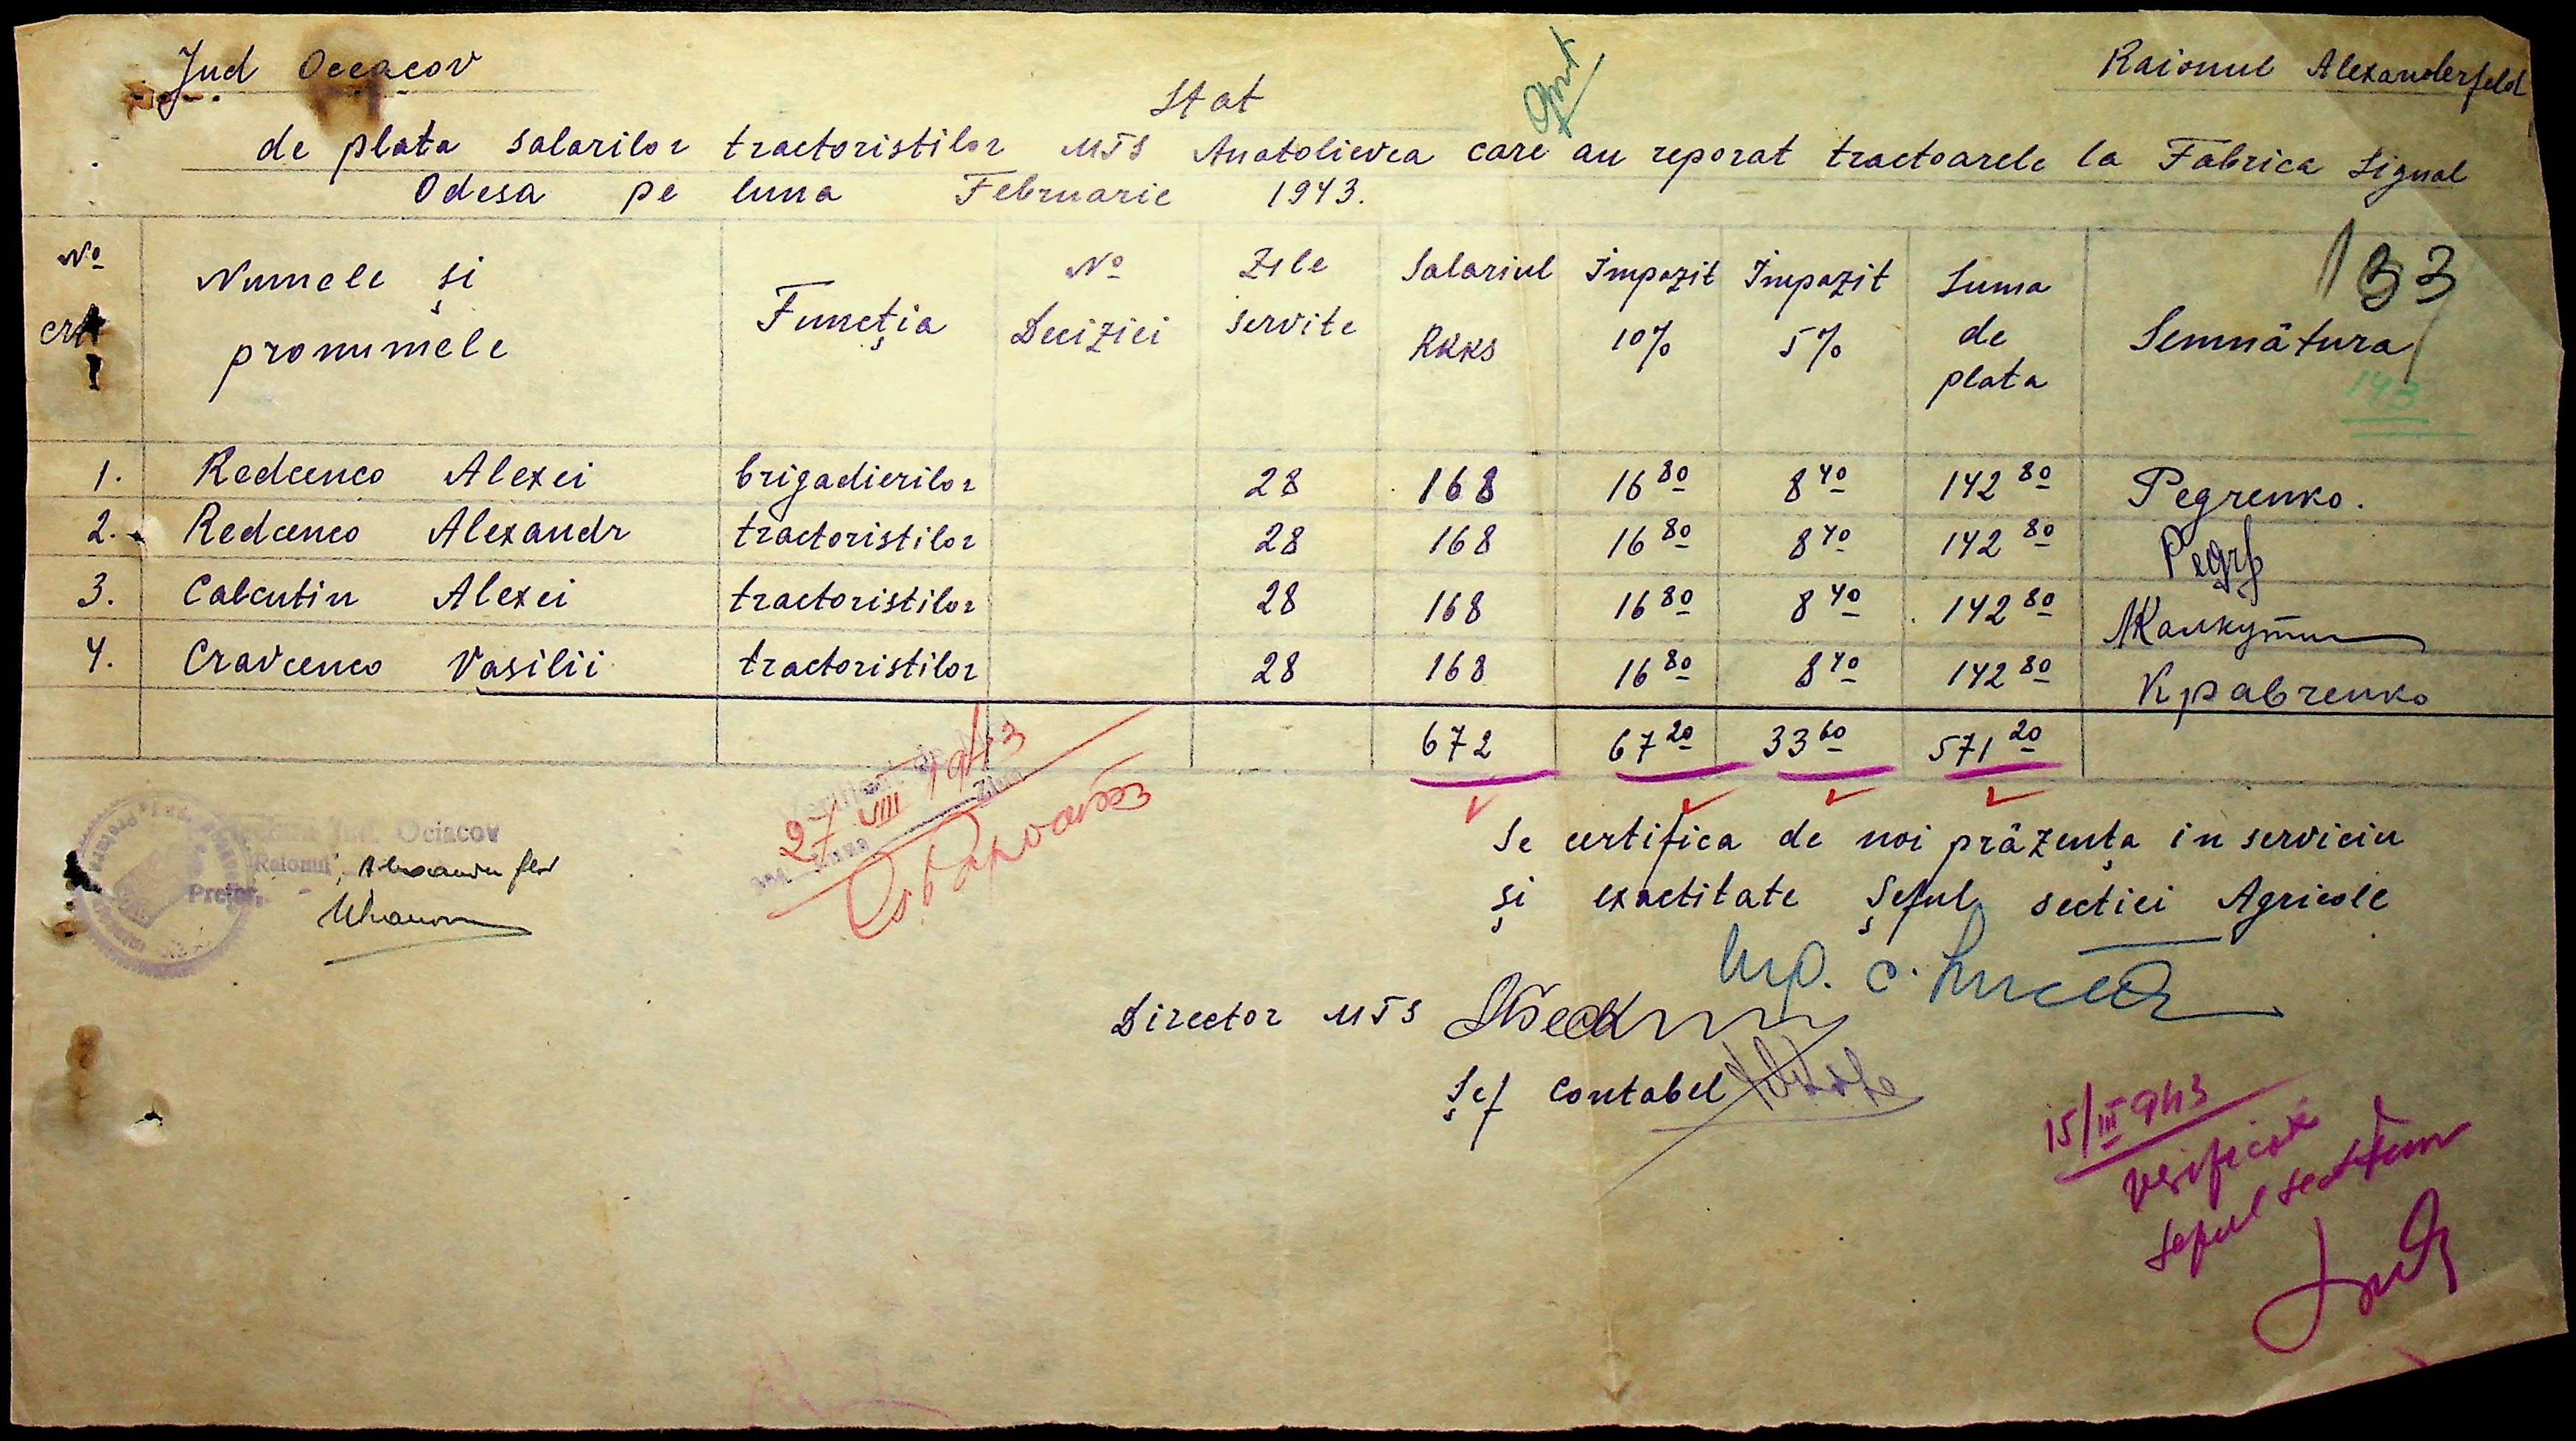 Jud Oceacov
Raionul Alexanderfeld
Stat
de plata salarilor tractoristilor MTS Anatolievca care au reporat tractoarele la Fabrica Signal
Odesa pe luna Februarie 1943.
No crt Numele și pronumele Funcția No Deciziei Zile servite Salariul RKKS Impozit 10% Impozit 5% Suma de plata Semnâtura
133
143
1. Redcenco Alexei brigadierilor 28 168 16 80 8 40 142 80 Редченко.
2. Redcenco Alexandr tractoristilor 28 168 16 80 8 40 142 80
3. Calcutin Alexei tractoristilor 28 168 16 80 8 40 142 80 Калкутин
4. Cravcenco Vasilii tractoristilor 28 168 16 80 8 40 142 80 Кравченко
672 67 20 33 60 571 20
27 VIII 1943
Jud. Ociacov
Raionul Alexanderfeld
Pretor
Se certifica de noi prâzența in serviciu
și exactitate Șeful sectiei Agricole
Director MTS
Șef Contabel
15/III 943
verificat